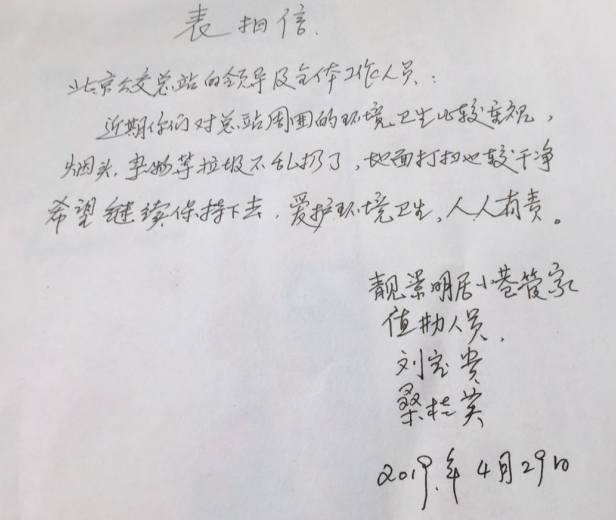 表扬信.
北京公交总站的领导及全体工作人员:
近期你们对总站周围的环境卫生比较重视,
烟头.杂物等垃圾不乱扔了,地面打扫也较干净
希望继续保持下去.爱护环境卫生,人人有责。
靓景明居小巷管家
值勤人员.
刘宝贵
桑桂英
2019.年4月29日